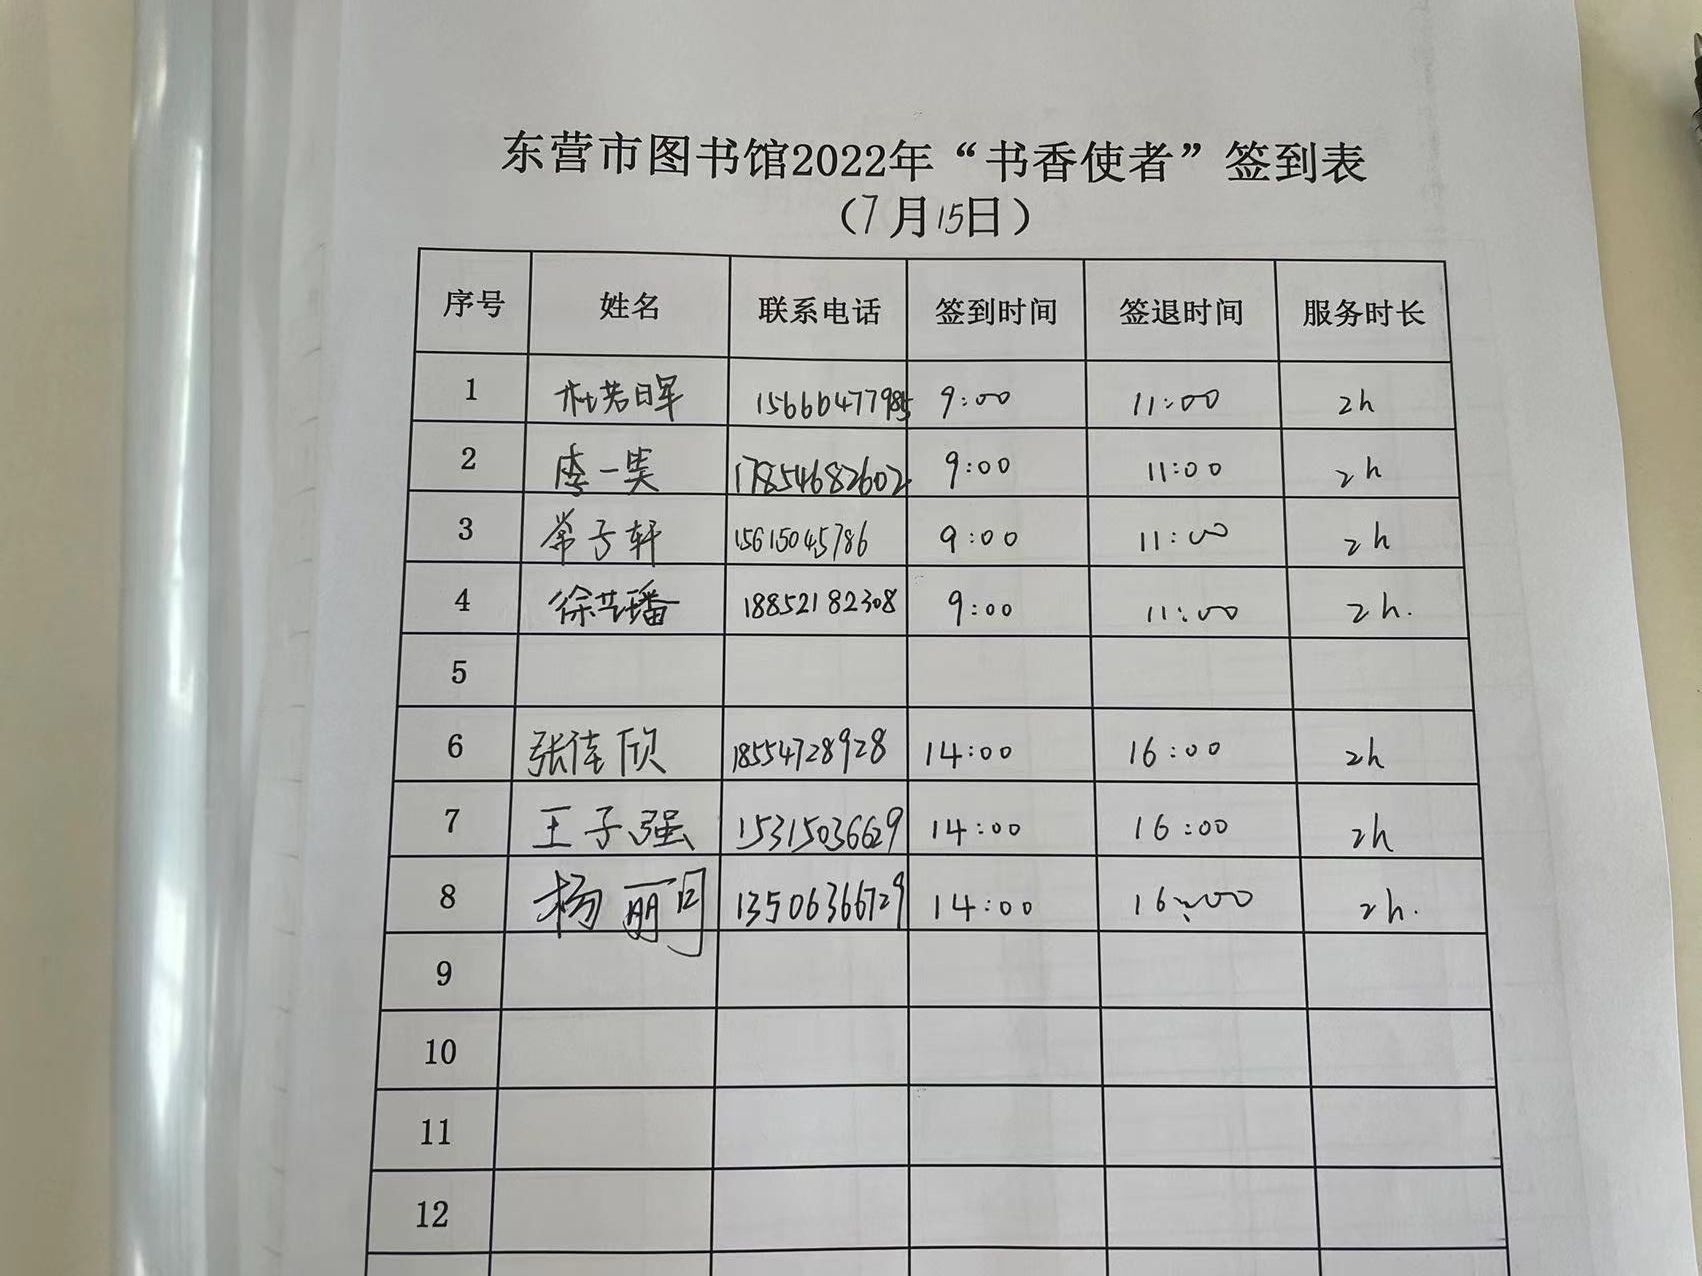 东营市图书馆2022年“书香使者”签到表
（7月15日）
序号 姓名 联系电话 签到时间 签退时间 服务时长
1 杜若晖 15660477985 9:00 11:00 2h
2 李一昊 17854682602 9:00 11:00 2h
3 常子轩 15615045786 9:00 11:00 2h
4 徐艺璠 18852182308 9:00 11:00 2h.
5
6 张佳欣 18554728928 14:00 16:00 2h
7 王子强 15315036629 14:00 16:00 2h
8 杨丽月 13506366729 14:00 16:00 2h.
9
10
11
12